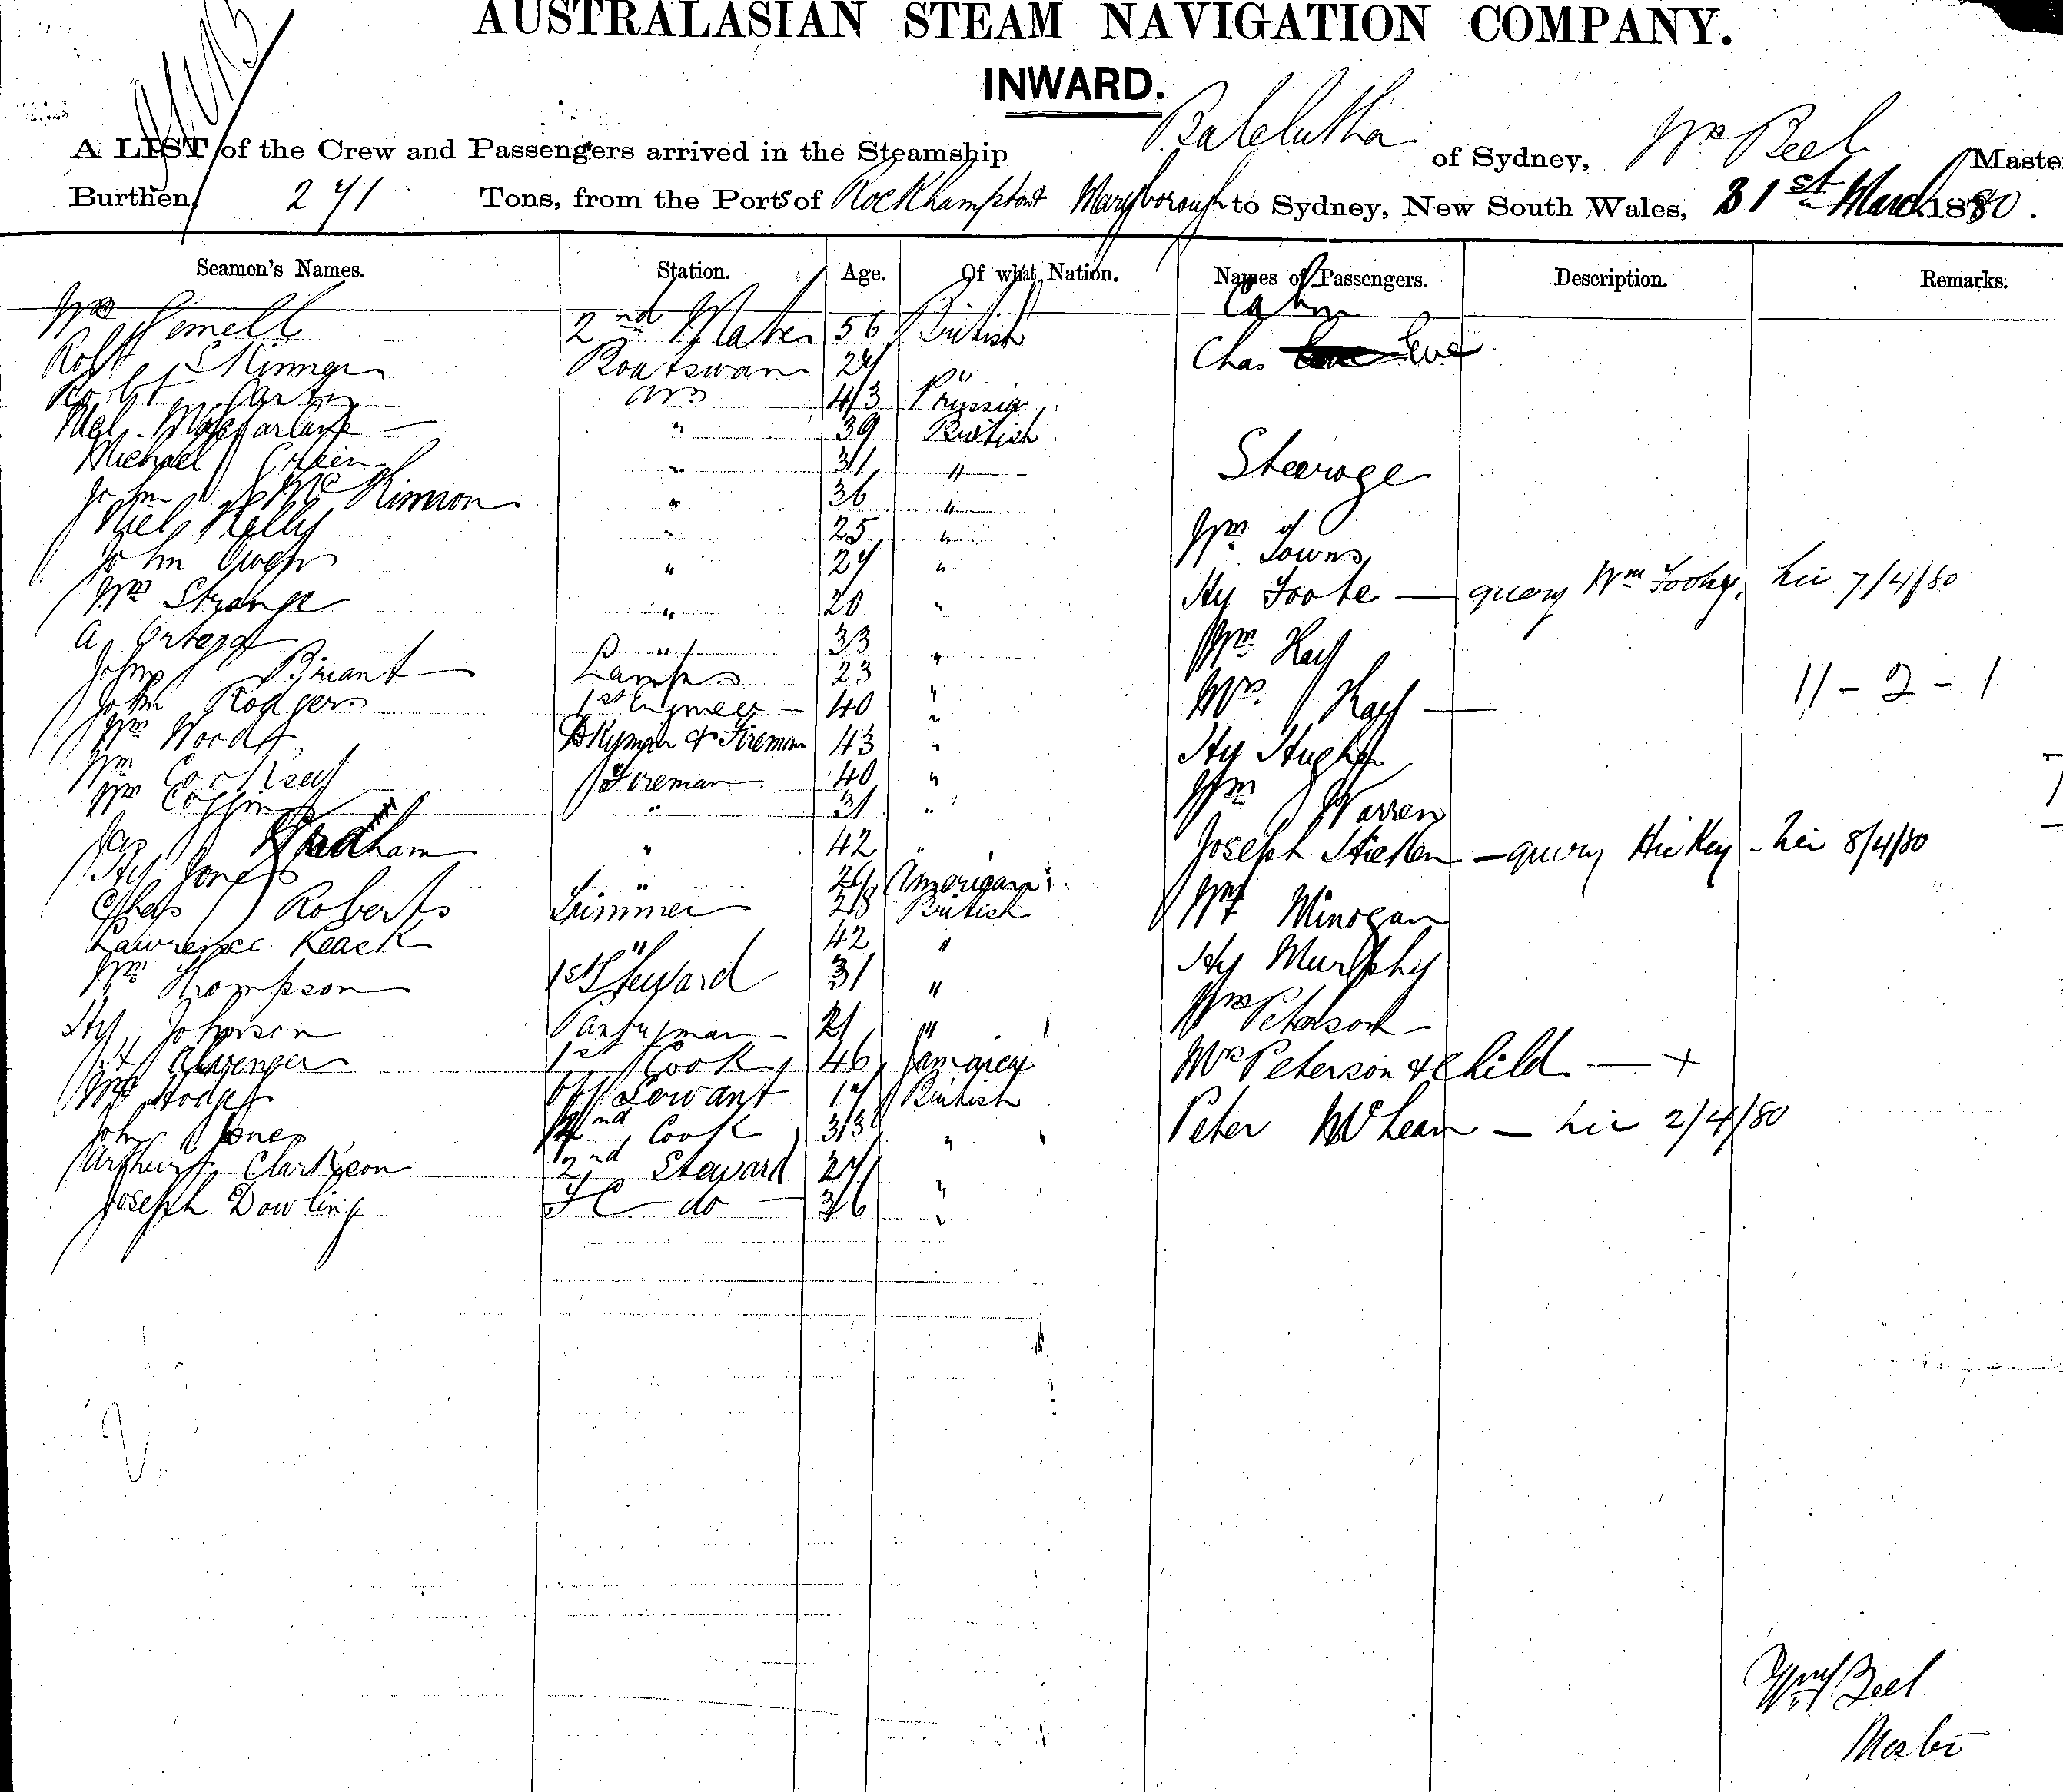 AUSTRALASIAN STEAM NAVIGATION COMPANY.
INWARD.
A LIST of the Crew and Passengers arrived in the Steamship Balclutha of Sydney, Wm Beel Maste
Burthen 271 Tons, from the Ports of Rockhampton & Maryborough to Sydney, New South Wales, 31st March 1880.
Seamen's Names. Station. Age. Of what Nation. Names of Passengers. Description. Remarks.
Cabin
Wm 2nd Mate 56 British
Robt Skinner Boatswain 24 "
Chas Eve
Robt AB 43 Prussia
Macfarlane " 39 British
Michael " 31 "
Steerage
John McKinnon " 36 "
Niel Kelly " 25 "
Wm Towns
John " 24 "
Wm Strange " 20 "
Hy Foote — query Wm Toohey. Lie 7/4/80
A. " 33
Wm Kay
John Bryant Lamps 23 "
Mrs Kay — 11 - 2 - 1
John Rodgers 1st Engineer — 40 "
Wm Woods Dkyman & Fireman 43 "
Hy Hughes
Wm Cooksey Foreman 40 "
Wm " 31 "
Wm Warren
Jas Wadham " 42 "
Joseph — query Hickey - Lie 8/4/80
Hy Jones " American
Chas Roberts Trimmer 28 British
Wm Minogan
Lawrence Keack " 42 "
Hy Murphy
Wm Thompson 1st Steward 31 "
Wm Peterson
Hy Johnson Pantryman - 21 "
1st Cook 46
Mrs Peterson & Child — +
Wm Hodges Servant 17 British
John Jones 2nd Cook 33 "
Peter McLean — Lie 2/4/80
Arthur Clarkson 2nd Steward 27 "
Joseph Dowling FC do — 36 "
Wm Beel
Master